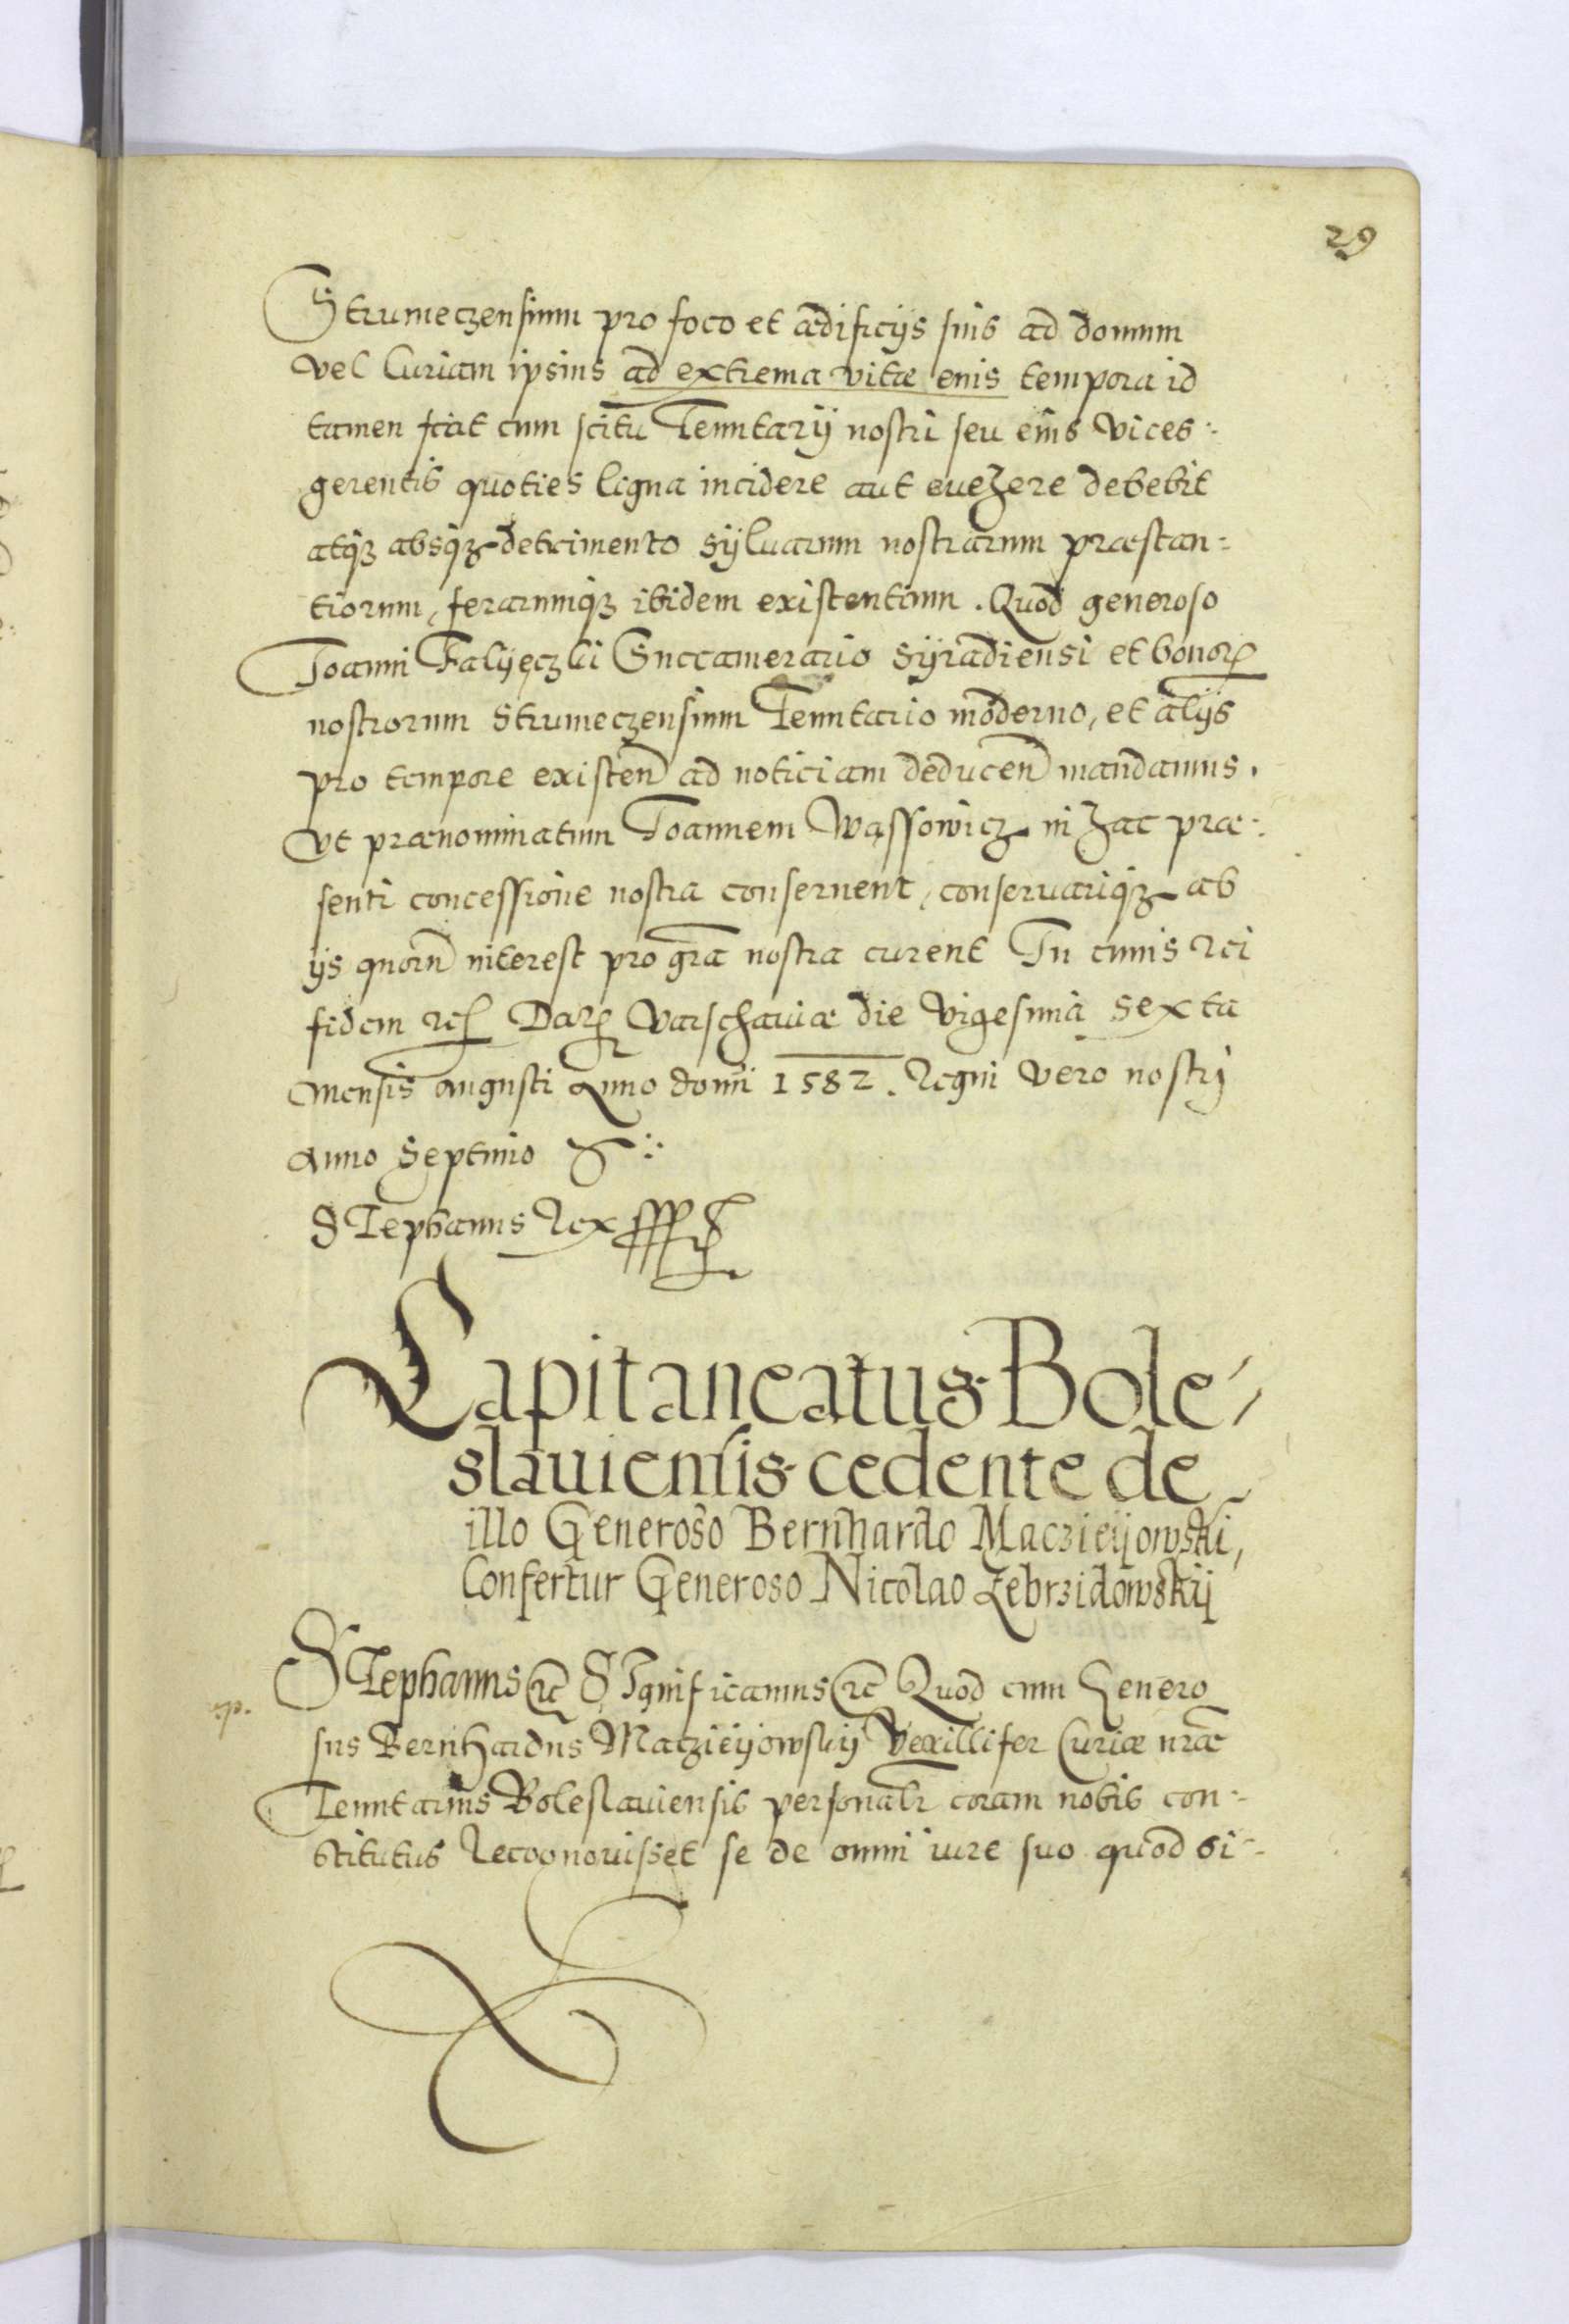 29
Strumeczensium pro foco et ædificijs suis ad domum
vel Curiam ipsius ad extrema vitæ eius tempora id
tamen fiat cum scitu Tenutarij nostri seu eius vices-
gerentis quoties ligna incidere aut euehere debebit
atq3 absq3 detrimento syluarum nostrarum præstan-
tiorum, ferarumq3 ibidem existentium. Quod generoso
Joanni Falijęczki Succamerario Syradiensi et bonor
nostrorum Strumeczensium Tenutario moderno, et alijs
pro tempore existen ad noticiam deducen mandamus.
Vt prænominatum Joannem Wąssowicz in hac præ-
senti concessione nostra conseruent, conseruariq3 ab
ijs quorū interest pro grā nostra curent In cuius rei
fidem rc Dat Varschauiæ die Vigesima Sexta
Mensis Augusti Anno domi 1582. Regni vero nostrj
Anno Septimo
STephanus Rex
Capitaneatus Bole-
slauiensis cedente de
illo Generoso Bernhardo Maczieijowski,
Confertur Generoso Nicolao Zebrzidowskij
STephanus rc SIgnificamus rc Quod cum Genero
sus Bernhardus Maczieijowskij Vexillifer Curiæ nræ
Tenutarius Boleslauiensis personalr coram nobis con-
stitutus Recognouisset se de omni iure suo quod si-